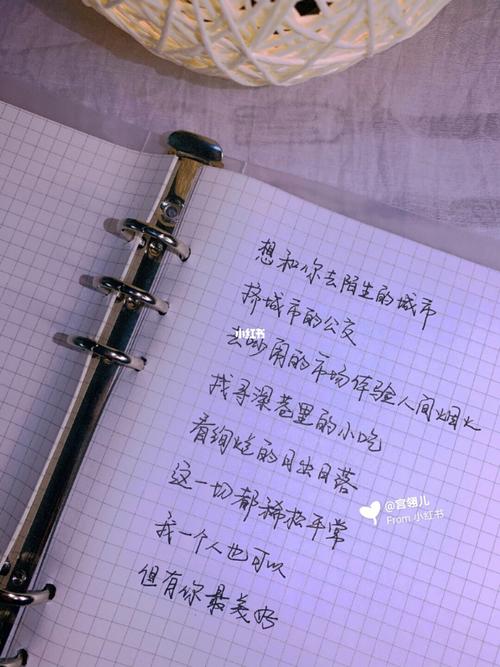 想和你去陌生的城市
挤城市的公交
去吵闹的市场体验人间烟火
找寻深巷里的小吃
看绚烂的日出日落
这一切都稀松平常
我一个人也可以
但有你最美好
小红书
@宫翎儿
From 小红书